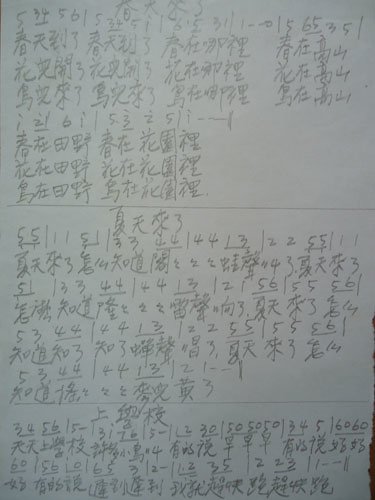 春天來了
5 34 5 6 | 5 34 5 i | 6 i 5 3 | 1 - - 0 | 5 65 3 5 |
春天到了 春天到了 春在哪裡 春在高山
花兒開了 花兒開了 花在哪裡 花在高山
鳥兒來了 鳥兒來了 鳥在哪裡 鳥在高山
i 2i 6 i | 5 3 2 5 | 1 - - - ‖
春在田野 春在花園裡
花在田野 花在花園裡
鳥在田野 鳥在花園裡
夏天來了
5 5 | 1 1 5 1 | 3 3 4 4 | 4 4 1 3 | 2 2 5 5 | 1 1
夏天來了 怎么知道 閣々々々 蛙聲叫了 夏天來了
5 1 | 3 3 4 4 | 4 4 1 3 | 2 1 5 6 | 5 5 5 6 |
怎么 知道 隆々々々 雷聲 响了 夏天 來了 怎么
5 3 4 4 | 4 4 1 3 | 2 2 5 5 | 5 5 5 6 |
知道 知了 知了 蟬聲 唱了 夏天 來了 怎么
5 3 4 4 | 4 4 1 3 | 2 1 - - ‖
知道 搖々々々 麥兒 黃了
上學校
3 4 5 6 | 5 - | 3 1 7 6 | 5 - | 1 2 3 0 | 5 0 5 0 5 0 | 3 4 5 | 6 0 6 0
天天上學校 許多小鳥叫 有的說 早早早 有的說 好好
6 0 | 5 6 | 1 0 | 6 5 3 | 2 - | 1 2 3 5 | 2 2 3 | 1 - - ‖
好 有的說 遲到遲到 我就趕快跑趕快跑